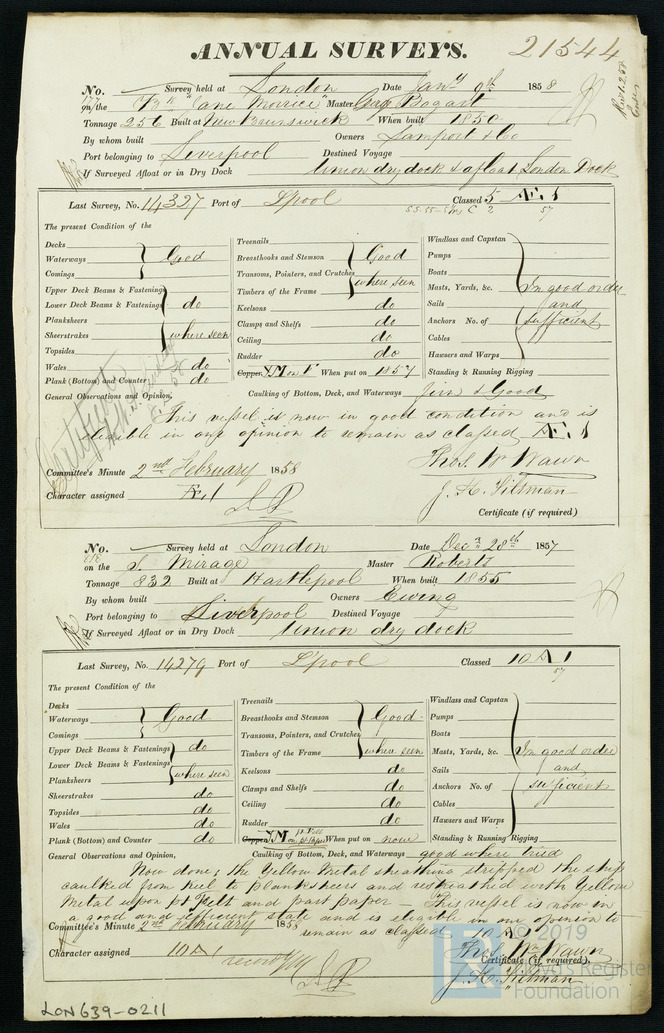 ANNUAL SURVEYS.
21544
No. Survey held at London Date Jany 9th 1858
on the "Jane Morice" Master Bogart
Tonnage 256 Built at New Brunswick When built 1850
By whom built Owners Lamport & Co
Port belonging to Liverpool Destined Voyage
If Surveyed Afloat or in Dry Dock Union dry dock & afloat London Dock
Last Survey, No. 14327 Port of L'pool Classed 5 Æ 1
57
The present Condition of the
Decks
Waterways Good
Comings
Upper Deck Beams & Fastenings
Lower Deck Beams & Fastenings do
Planksheers
Sheerstrakes where seen
Topsides
Wales do
Plank (Bottom) and Counter do
Treenails
Breasthooks and Stemson Good
Transoms, Pointers, and Crutches
Timbers of the Frame where seen
Keelsons do
Clamps and Shelfs do
Ceiling do
Rudder do
Copper YM on F When put on 1857
Windlass and Capstan
Pumps
Boats
Masts, Yards, &c. In good order
Sails and
Anchors No. of sufficient
Cables
Hawsers and Warps
Standing & Running Rigging
General Observations and Opinion, Caulking of Bottom, Deck, and Waterways firm & Good
This vessel is now in good condition and is
eligible in our opinion to remain as classed Æ 1
Thos. Wm Wawn
Committee's Minute 2nd February 1858
J. H. Tilsman
Character assigned Æ 1
Certificate (if required)
No. Survey held at London Date Decr 28th 1857
on the S. Mirage Master Roberts
Tonnage 832 Built at Hartlepool When built 1855
By whom built Owners Ewing
Port belonging to Liverpool Destined Voyage
If Surveyed Afloat or in Dry Dock Union dry dock
Last Survey, No. 14279 Port of L'pool Classed 10 A 1
57
The present Condition of the
Decks
Waterways Good
Comings
Upper Deck Beams & Fastenings do
Lower Deck Beams & Fastenings
Planksheers where seen
Sheerstrakes do
Topsides do
Wales do
Plank (Bottom) and Counter do
Treenails
Breasthooks and Stemson Good
Transoms, Pointers, and Crutches
Timbers of the Frame where seen
Keelsons do
Clamps and Shelfs do
Ceiling do
Rudder do
Copper YM on pt Felt pt Paper When put on now
Windlass and Capstan
Pumps
Boats
Masts, Yards, &c. In good order
Sails and
Anchors No. of sufficient
Cables
Hawsers and Warps
Standing & Running Rigging
General Observations and Opinion, Caulking of Bottom, Deck, and Waterways good where tried
Now done; the Yellow Metal sheathing stripped the ship
caulked from keel to planksheers and resheathed with Yellow
Metal upon pt Felt and part paper – This vessel is now in
a good and sufficient state and is eligible in our opinion to
Committee's Minute 2nd February 1858 remain as classed 10 A 1
Thos. Wm Wawn
Character assigned 10 A
Certificate (if required).
J. H. Tilsman
LON639-0211
© 2019
Lloyd's Register
Foundation